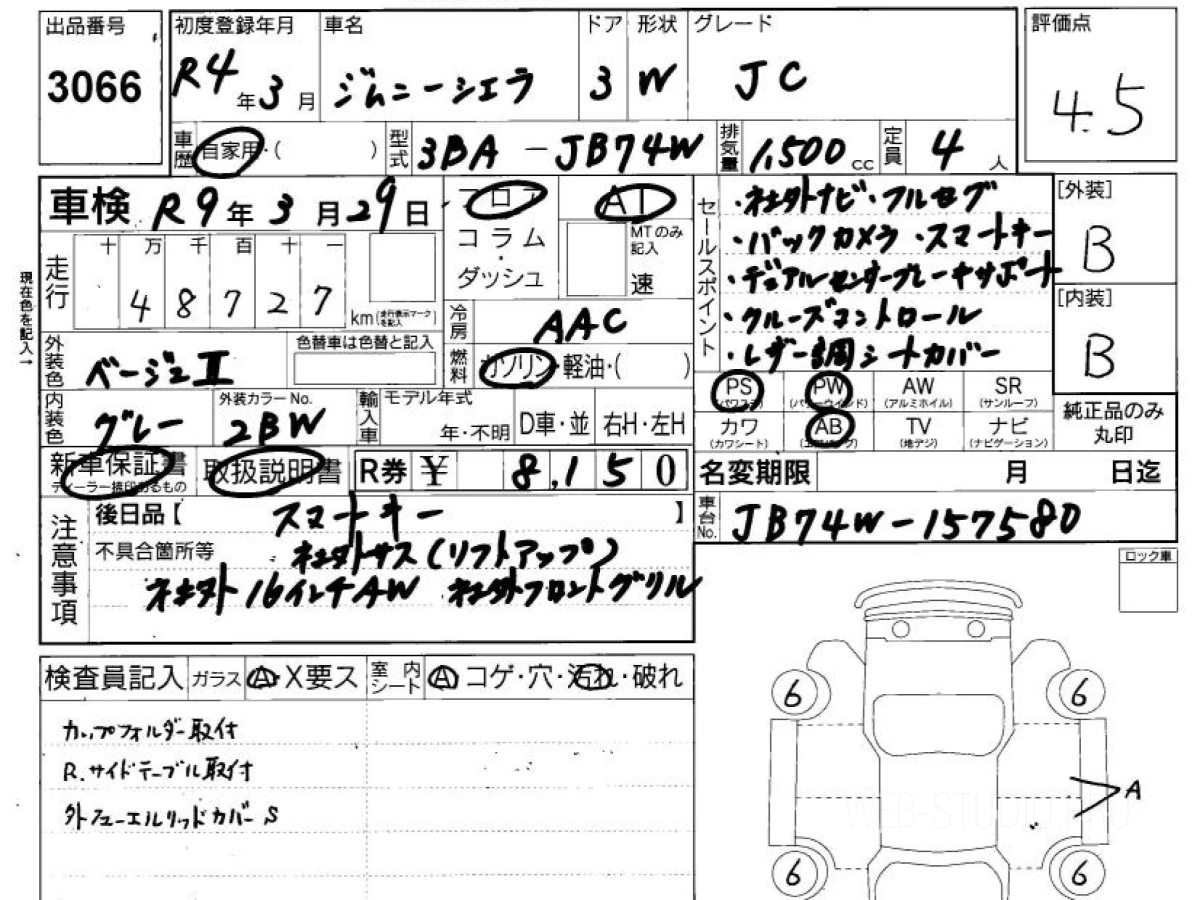 出品番号
3066
初度登録年月
R4年3月
車名
ジムニーシエラ
ドア
3
形状
W
グレード
JC
評価点
4.5
車歴
自家用・( )
型式
3BA-JB74W
排気量
1,500cc
定員
4人
車検 R9年3月29日
フロア
コラム
・
ダッシュ
AT
MTのみ記入
速
セールスポイント
・社外ナビ・フルセグ
・バックカメラ ・スマートキー
・デュアルセンサーブレーキサポート
・クルーズコントロール
・レザー調シートカバー
[外装]
B
[内装]
B
現在色を記入→
走行
十 万 千 百 十 一
4 8 7 2 7
km(走行表示マークを記入)
冷房
AAC
外装色
ベージュII
色替車は色替と記入
燃料
ガソリン・軽油・( )
PS (パワステ)
PW (パワーウインド)
AW (アルミホイル)
SR (サンルーフ)
カワ (カワシート)
AB (エアバッグ)
TV (地デジ)
ナビ (ナビゲーション)
純正品のみ
丸印
内装色
グレー
外装カラーNo.
2BW
輸入車
モデル年式
年・不明
D車・並
右H・左H
新車保証書
ディーラー捺印あるもの
取扱説明書
R券 ¥ 8,150
名変期限 月 日迄
車台No.
JB74W-157580
注意事項
後日品【 スマートキー 】
不具合箇所等 社外サス(リフトアップ)
社外16インチAW 社外フロントグリル
ロック車
検査員記入
ガラス
A・X要ス
室内シート
A コゲ・穴・汚れ・破れ
カップフォルダー取付
R.サイドテーブル取付
外フューエルリッドカバーS
6
6
A
WEB-STUDIO.PRO
6
6